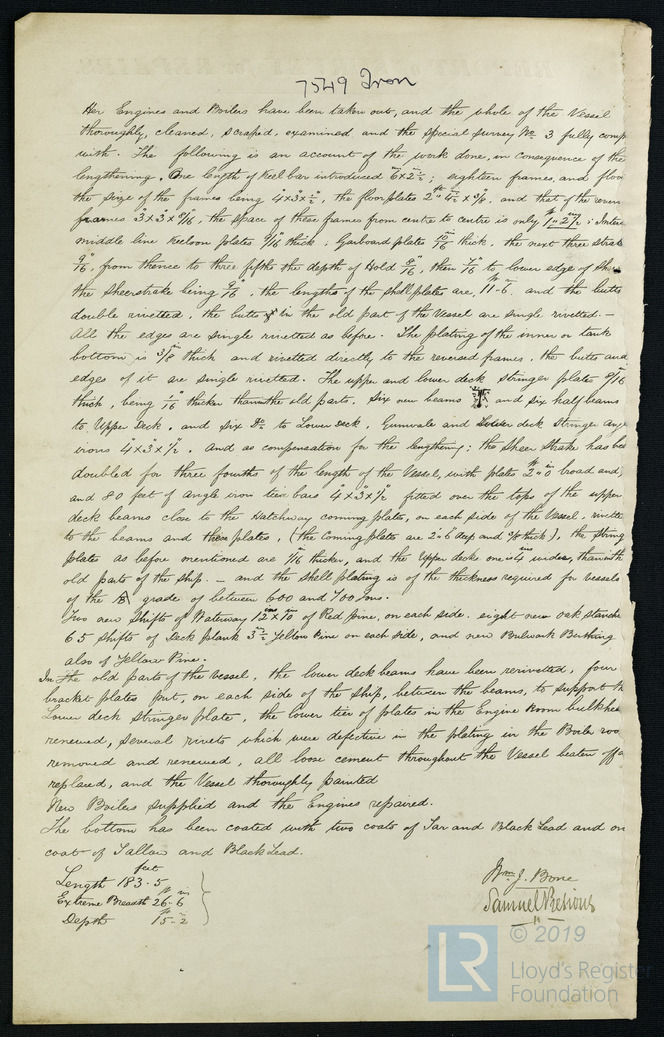 7549 Iron
Her Engines and Boilers have been taken out, and the whole of the Vessel
thoroughly, cleaned, scraped, examined and the Special Survey No 3 fully comp
with. The following is an account of the work done, in consequence of the
lengthening. One length of Keel bar introduced 6 x 2½; eighteen frames, and floo
the size of the frames being 4 x 3 x ½, the floorplates, and that of the rever
frames 3 x 3 x 6/16, the space of these frames from centre to centre is only
middle line Keelson plates 9/16 thick; Garboard plates 10/16 thick, the next three strake
9/16, from thence to three fifths the depth of Hold 8/16, then 7/16 to lower edge of She
the Sheerstrake being 9/16, the lengths of the shell plates are, 11-6, and the butts
double rivetted, the butts in the old part of the Vessel are single rivetted.-
All the edges are single rivetted as before. The plating of the inner or tank
bottom is 3/8 thick and rivetted directly to the reversed frames, the butts and
edges of it are single rivetted. The upper and lower deck Stringer plates 8/16
thick, being 1/16 thicker than the old parts, Six new beams and six half beams
to Upper Deck, and six Do to Lower Deck, Gunwale and Lower deck Stringer Ang
irons 4 x 3 x ½. And as compensation for the lengthening; the Sheer Strake has bee
doubled for three fourths of the length of the Vessel, with plates 2"0 broad and,
and 80 feet of Angle iron tie bars 4 x 3 x ½ fitted over the tops of the upper
deck beams close to the Hatchway coming plates, on each side of the Vessel, rivette
to the beams and these plates, (the Coming plates are 2-6 deep and thick), the string
plates as before mentioned are 1/16 thicker, and the Upper deck one is 4 ins wider, than with
old parts of the Ship. - and the shell plating is of the thickness required for vessels
of the A grade of between 600 and 700 tons.
Two new Shifts of Waterway 12 x 10 of Red Pine, on each side. eight new oak stanche
65 Shifts of Deck plank 3½ Yellow Pine on each side, and new Bulwark Berthing
also of Yellow Pine.
In the old parts of the Vessel, the lower deck beams have been rerivetted, four
bracket plates put, on each side of the Ship, between the beams, to support th
Lower deck Stringer plate, the lower tier of plates in the Engine Room bulkhea
renewed, Several rivets which were defective in the plating in the Boiler roo
removed and renewed, all loose cement throughout the Vessel beaten off a
replaced, and the Vessel thoroughly painted
New Boilers supplied and the Engines repaired.
The bottom has been coated with two coats of Tar and Black Lead and on
coat of Tallow and Black Lead.
feet
Length 183.5
ft ins
Extreme Breadth 26-6
Depth 15-2
Wm J. Bone
Samuel
© 2019
LR Lloyd's Register
Foundation